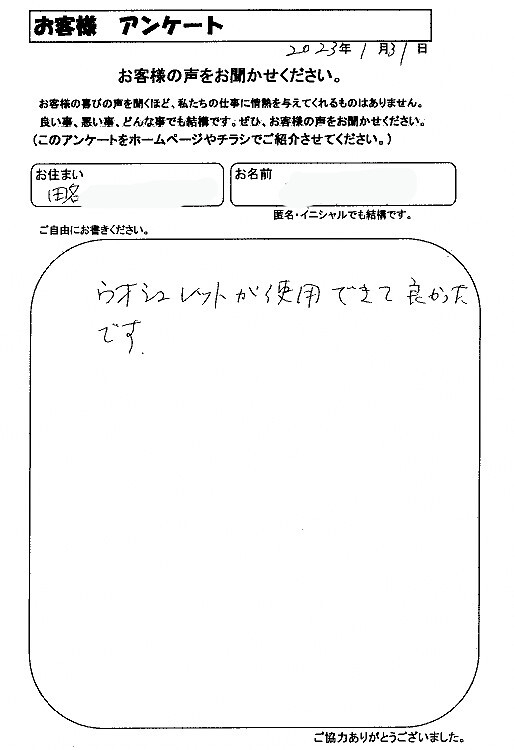 お客様 アンケート
2023年1月31日
お客様の声をお聞かせください。
お客様の喜びの声を聞くほど、私たちの仕事に情熱を与えてくれるものはありません。
良い事、悪い事、どんな事でも結構です。ぜひ、お客様の声をお聞かせください。
(このアンケートをホームページやチラシでご紹介させてください。)
お住まい
田名
お名前
匿名・イニシャルでも結構です。
ご自由にお書きください。
ウオシュレットが使用できて良かった
です.
ご協力ありがとうございました。